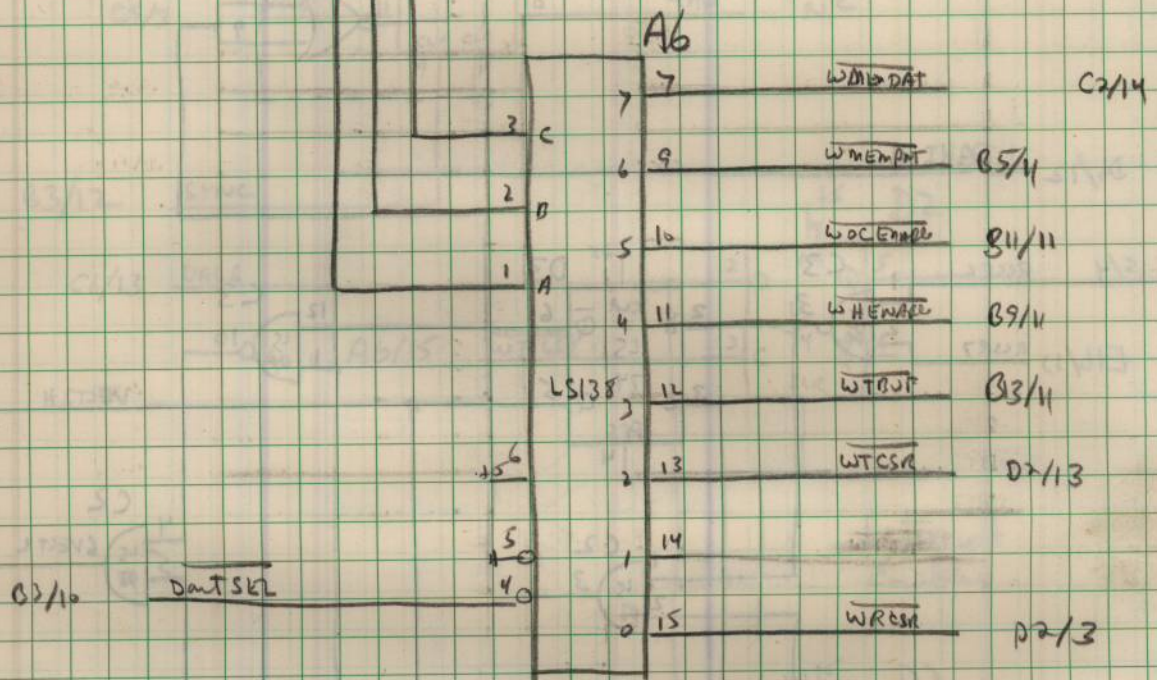 A6
7 7 WMEMDAT C2/14
3 C
6 9 WMEMDAT B5/11
2 B
5 10 WOCENABL B11/11
1 A
4 11 WHENABL B9/11
LS138
3 12 WTBUF B13/11
+5 6
2 13 WTCSR D2/13
5
1 14
B3/10 DOUTSEL 4
0 15 WRCSR D2/3